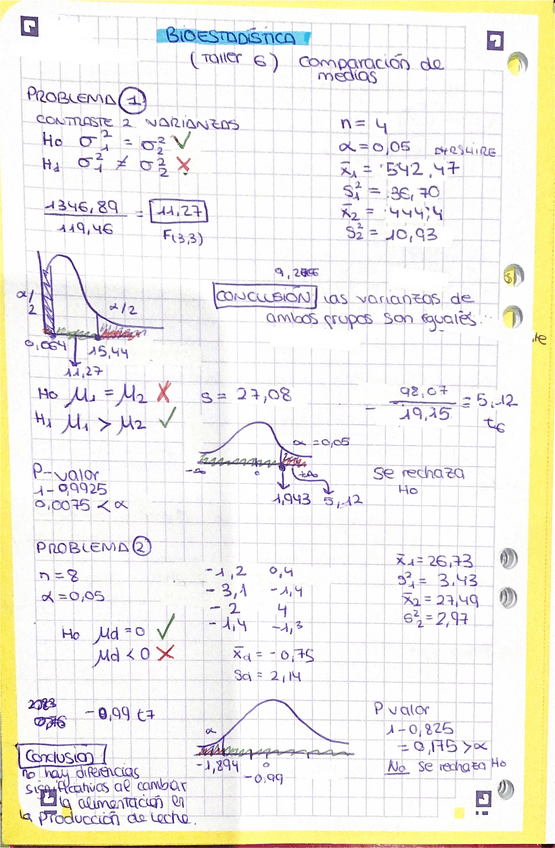 BIOESTADÍSTICA
(Taller 6) Comparación de
medias
PROBLEMA 1
CONTRASTE 2 VARIANZAS
H0 σ₁² = σ₂² ✓
H1 σ₁² ≠ σ₂² ✗
n = 4
α = 0,05
x̄₁ = 542,47
S₁² = 36,70
x̄₂ = 444,4
S₂² = 10,93
1346,89 / 119,46 = 11,27
F(3,3)
CONCLUSIÓN las varianzas de
ambos grupos son iguales.
α/2
α/2
0,064
15,44
11,27
H0 μ₁ = μ₂ ✗
H1 μ₁ > μ₂ ✓
S = 27,08
98,07 / 19,15 = 5,12
t6
α = 0,05
0
1,943 5,12
Se rechaza
H0
P-valor
1-0,9925
0,0075 < α
PROBLEMA 2
n = 8
α = 0,05
-1,2 0,4
-3,1 -1,4
-2 4
-1,4 -1,3
x̄₁ = 26,73
S₁² = 3,43
x̄₂ = 27,49
S₂² = 2,97
H0 μd = 0 ✓
μd < 0 ✗
x̄d = -0,75
Sd = 2,14
-0,99 t7
α
-1,894 0
-0,99
P valor
1-0,825
= 0,175 > α
No se rechaza H0
Conclusión
no hay diferencias
significativas al cambiar
la alimentación en
la producción de leche.